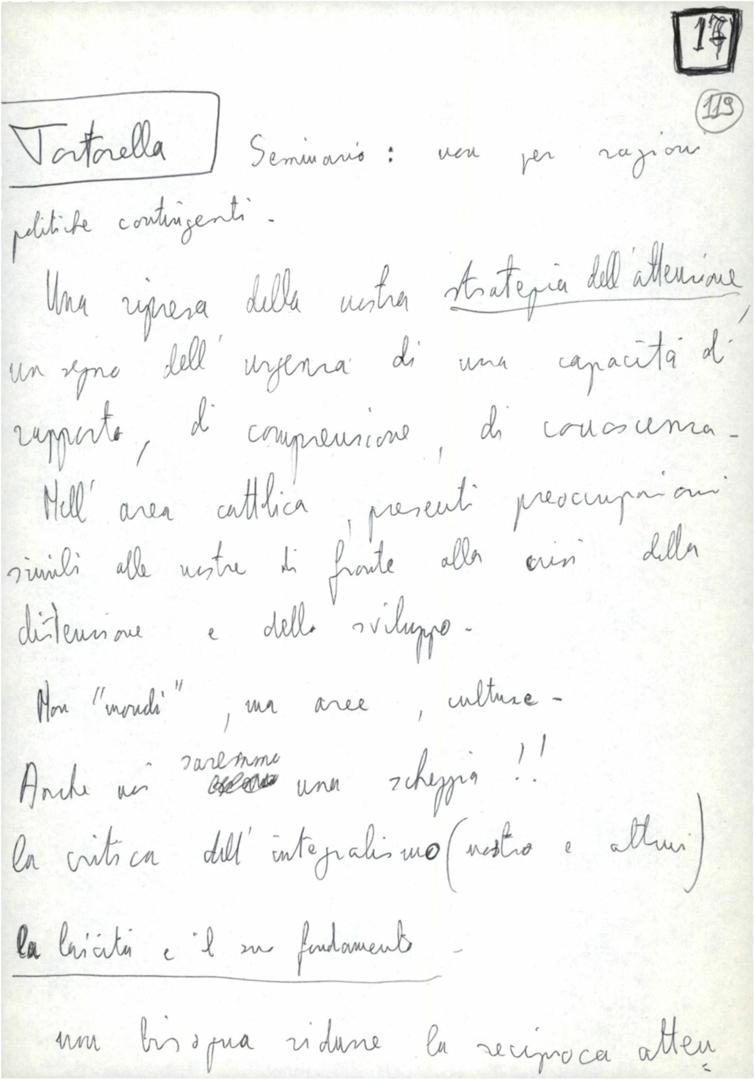 17
119
Tortorella Seminario : non per ragioni
politiche contingenti -
Una ripresa della nostra strategia dell'attenzione,
un segno dell'urgenza di una capacità di
rapporto, di comprensione, di conoscenza -
Nell'area cattolica, presenti preoccupazioni
simili alle nostre di fronte alla crisi della
distensione e dello sviluppo -
Non "mondi", ma aree, culture -
Anche noi saremmo una scheggia !!
la critica dell'integralismo (nostro e altrui)
la laicità e il suo fondamento -
non bisogna ridurre la reciproca atten